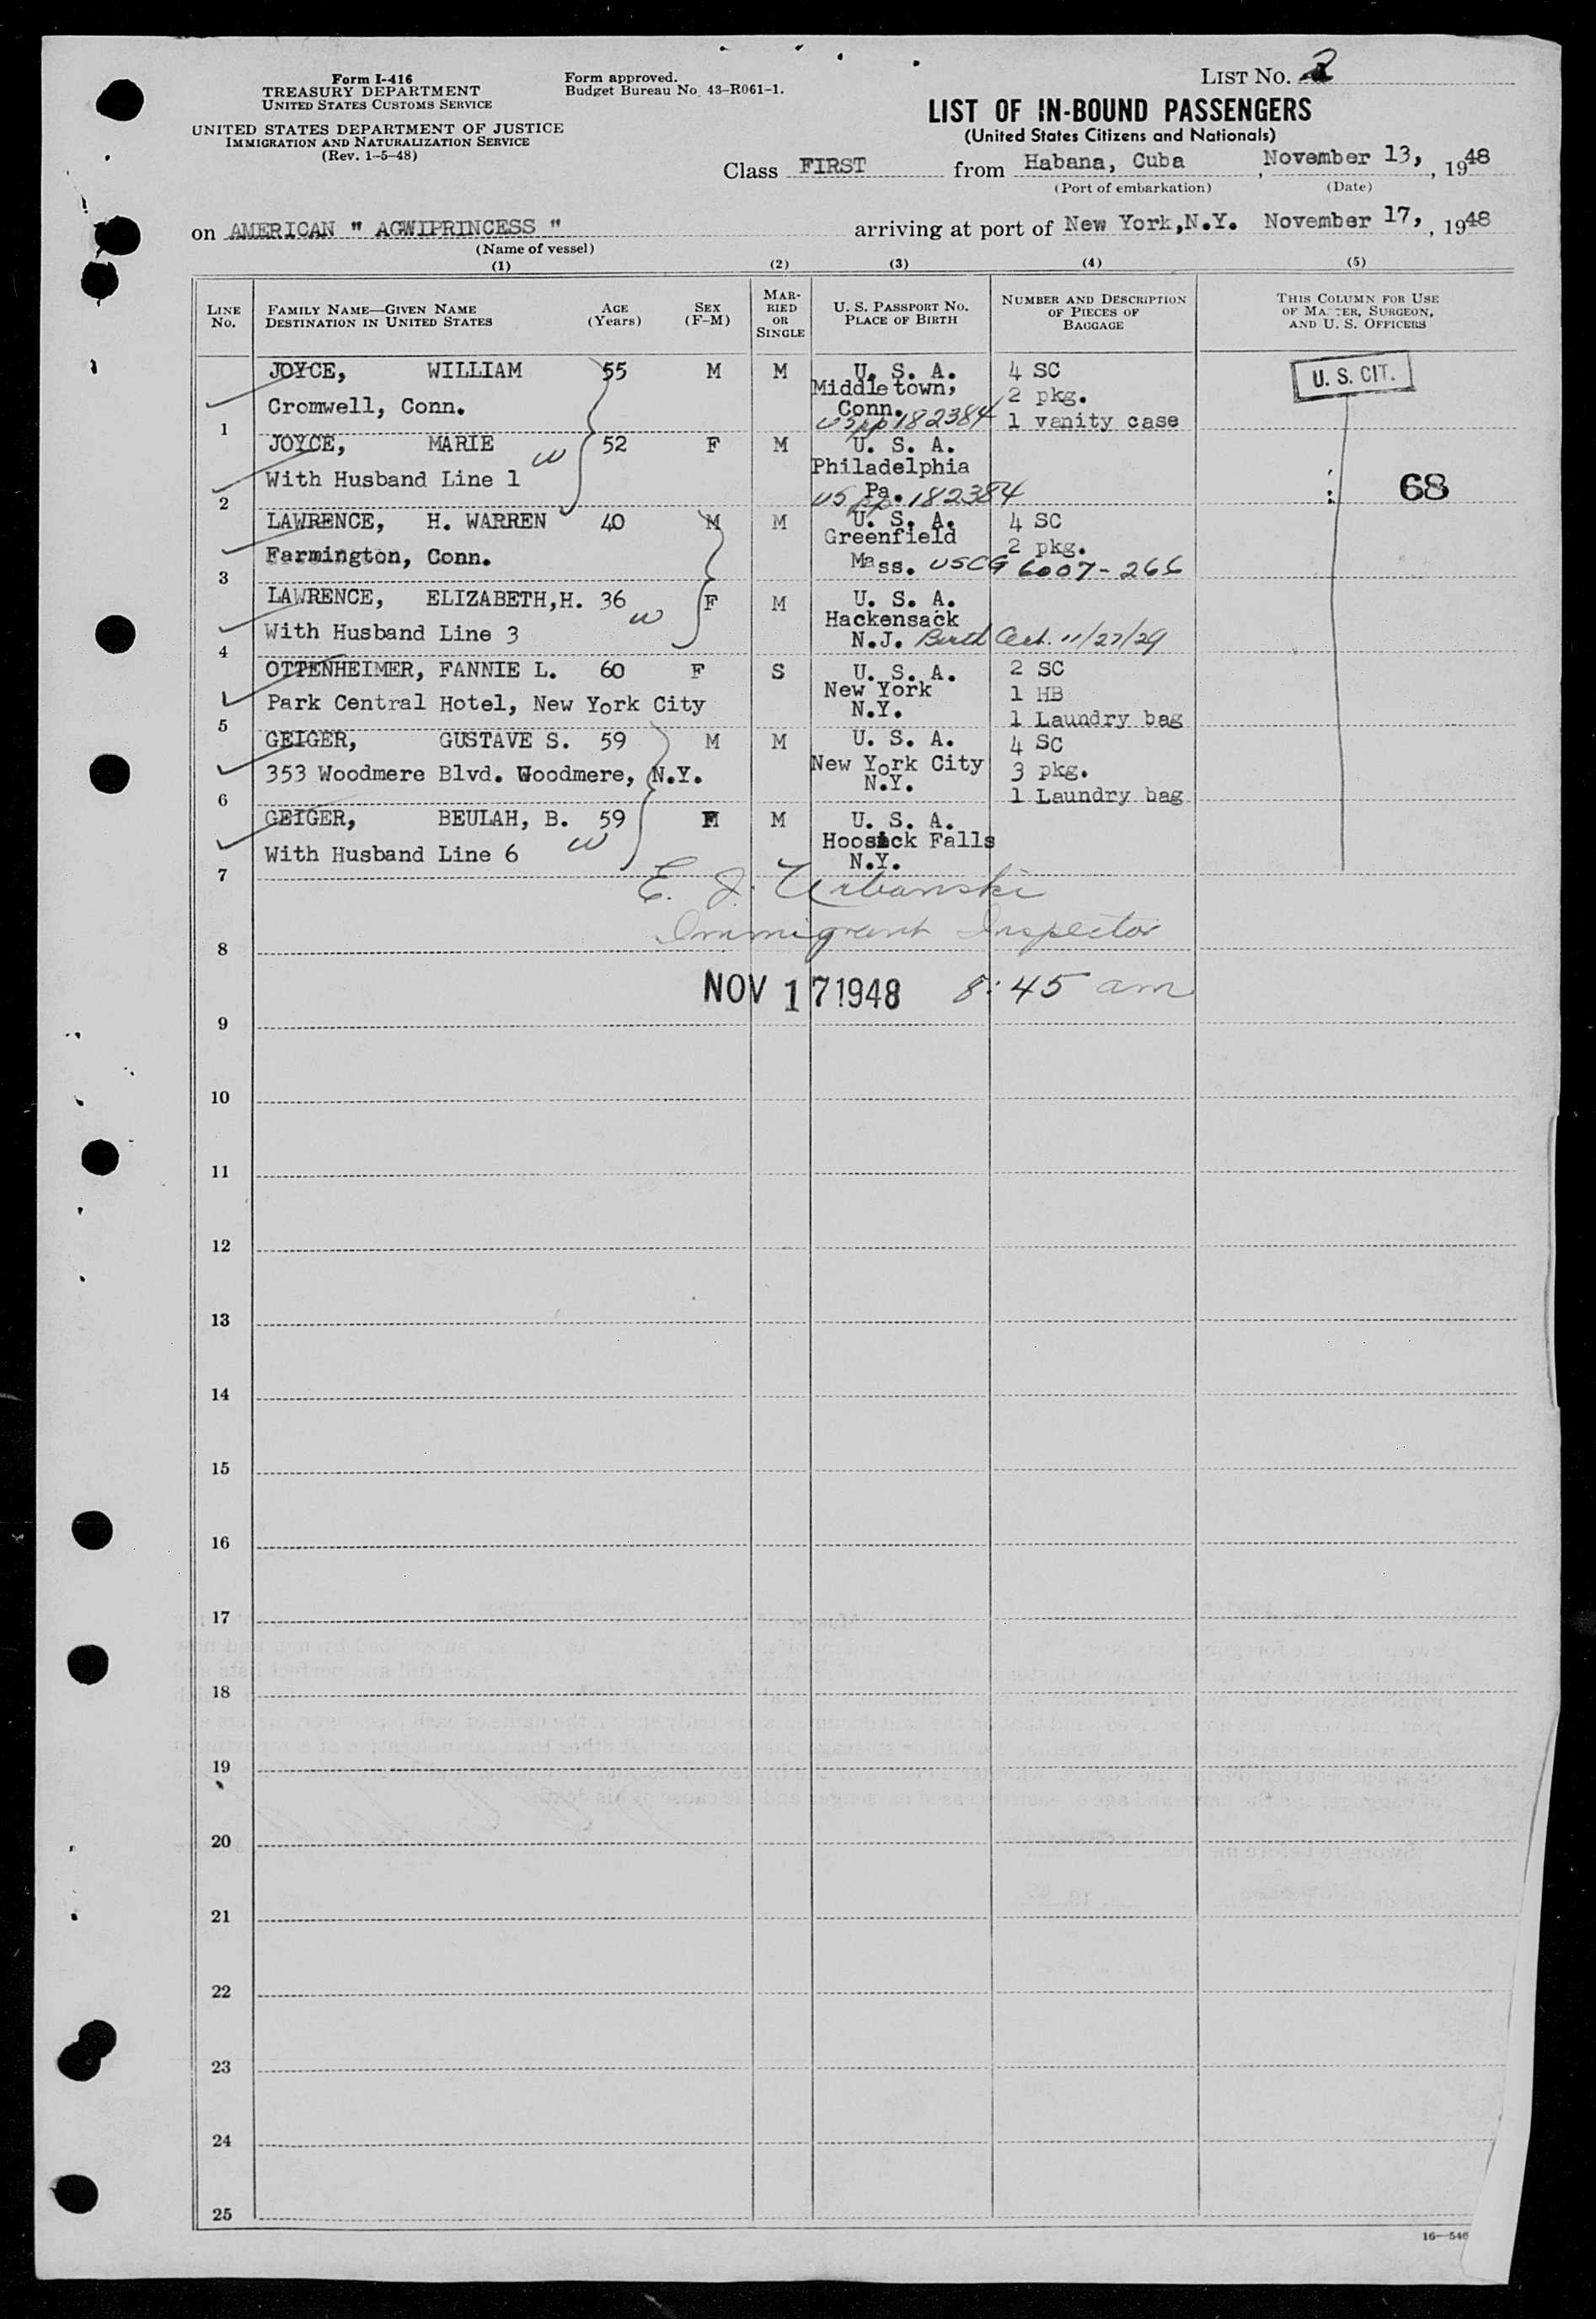 Form I-416
TREASURY DEPARTMENT
UNITED STATES CUSTOMS SERVICE
UNITED STATES DEPARTMENT OF JUSTICE
IMMIGRATION AND NATURALIZATION SERVICE
(Rev. 1-5-48)
Form approved.
Budget Bureau No. 43-R061-1.
LIST NO. 2
LIST OF IN-BOUND PASSENGERS
(United States Citizens and Nationals)
Class FIRST from Habana, Cuba, November 13, 1948
(Port of embarkation) (Date)
on AMERICAN " AGWIPRINCESS " arriving at port of New York,N.Y. November 17, 1948
(Name of vessel)
(1) (2) (3) (4) (5)
LINE NO.
FAMILY NAME—GIVEN NAME
DESTINATION IN UNITED STATES
AGE (Years)
SEX (F-M)
MARRIED OR SINGLE
U. S. PASSPORT NO.
PLACE OF BIRTH
NUMBER AND DESCRIPTION OF PIECES OF BAGGAGE
THIS COLUMN FOR USE OF MASTER, SURGEON, AND U. S. OFFICERS
JOYCE, WILLIAM 55 M M U. S. A. 4 SC U. S. CIT.
Cromwell, Conn. Middletown, 2 pkg.
1 Conn. US pp 182384 1 vanity case
JOYCE, MARIE W 52 F M U. S. A.
With Husband Line 1 Philadelphia
2 Pa. US pp 182384 68
LAWRENCE, H. WARREN 40 M M U. S. A. 4 SC
Farmington, Conn. Greenfield 2 pkg.
3 Mass. USCG 6007-266
LAWRENCE, ELIZABETH,H. 36 W F M U. S. A.
With Husband Line 3 Hackensack
4 N.J. Birth Cert. 11/27/29
OTTENHEIMER, FANNIE L. 60 F S U. S. A. 2 SC
Park Central Hotel, New York City New York 1 HB
5 N.Y. 1 Laundry bag
GEIGER, GUSTAVE S. 59 M M U. S. A. 4 SC
353 Woodmere Blvd. Woodmere, N.Y. New York City 3 pkg.
6 N.Y. 1 Laundry bag
GEIGER, BEULAH, B. 59 F M U. S. A.
With Husband Line 6 W Hoosick Falls
7 N.Y.
E. J. Urbanski
8 Immigrant Inspector
NOV 17 1948 8:45 am
9
10
11
12
13
14
15
16
17
18
19
20
21
22
23
24
25